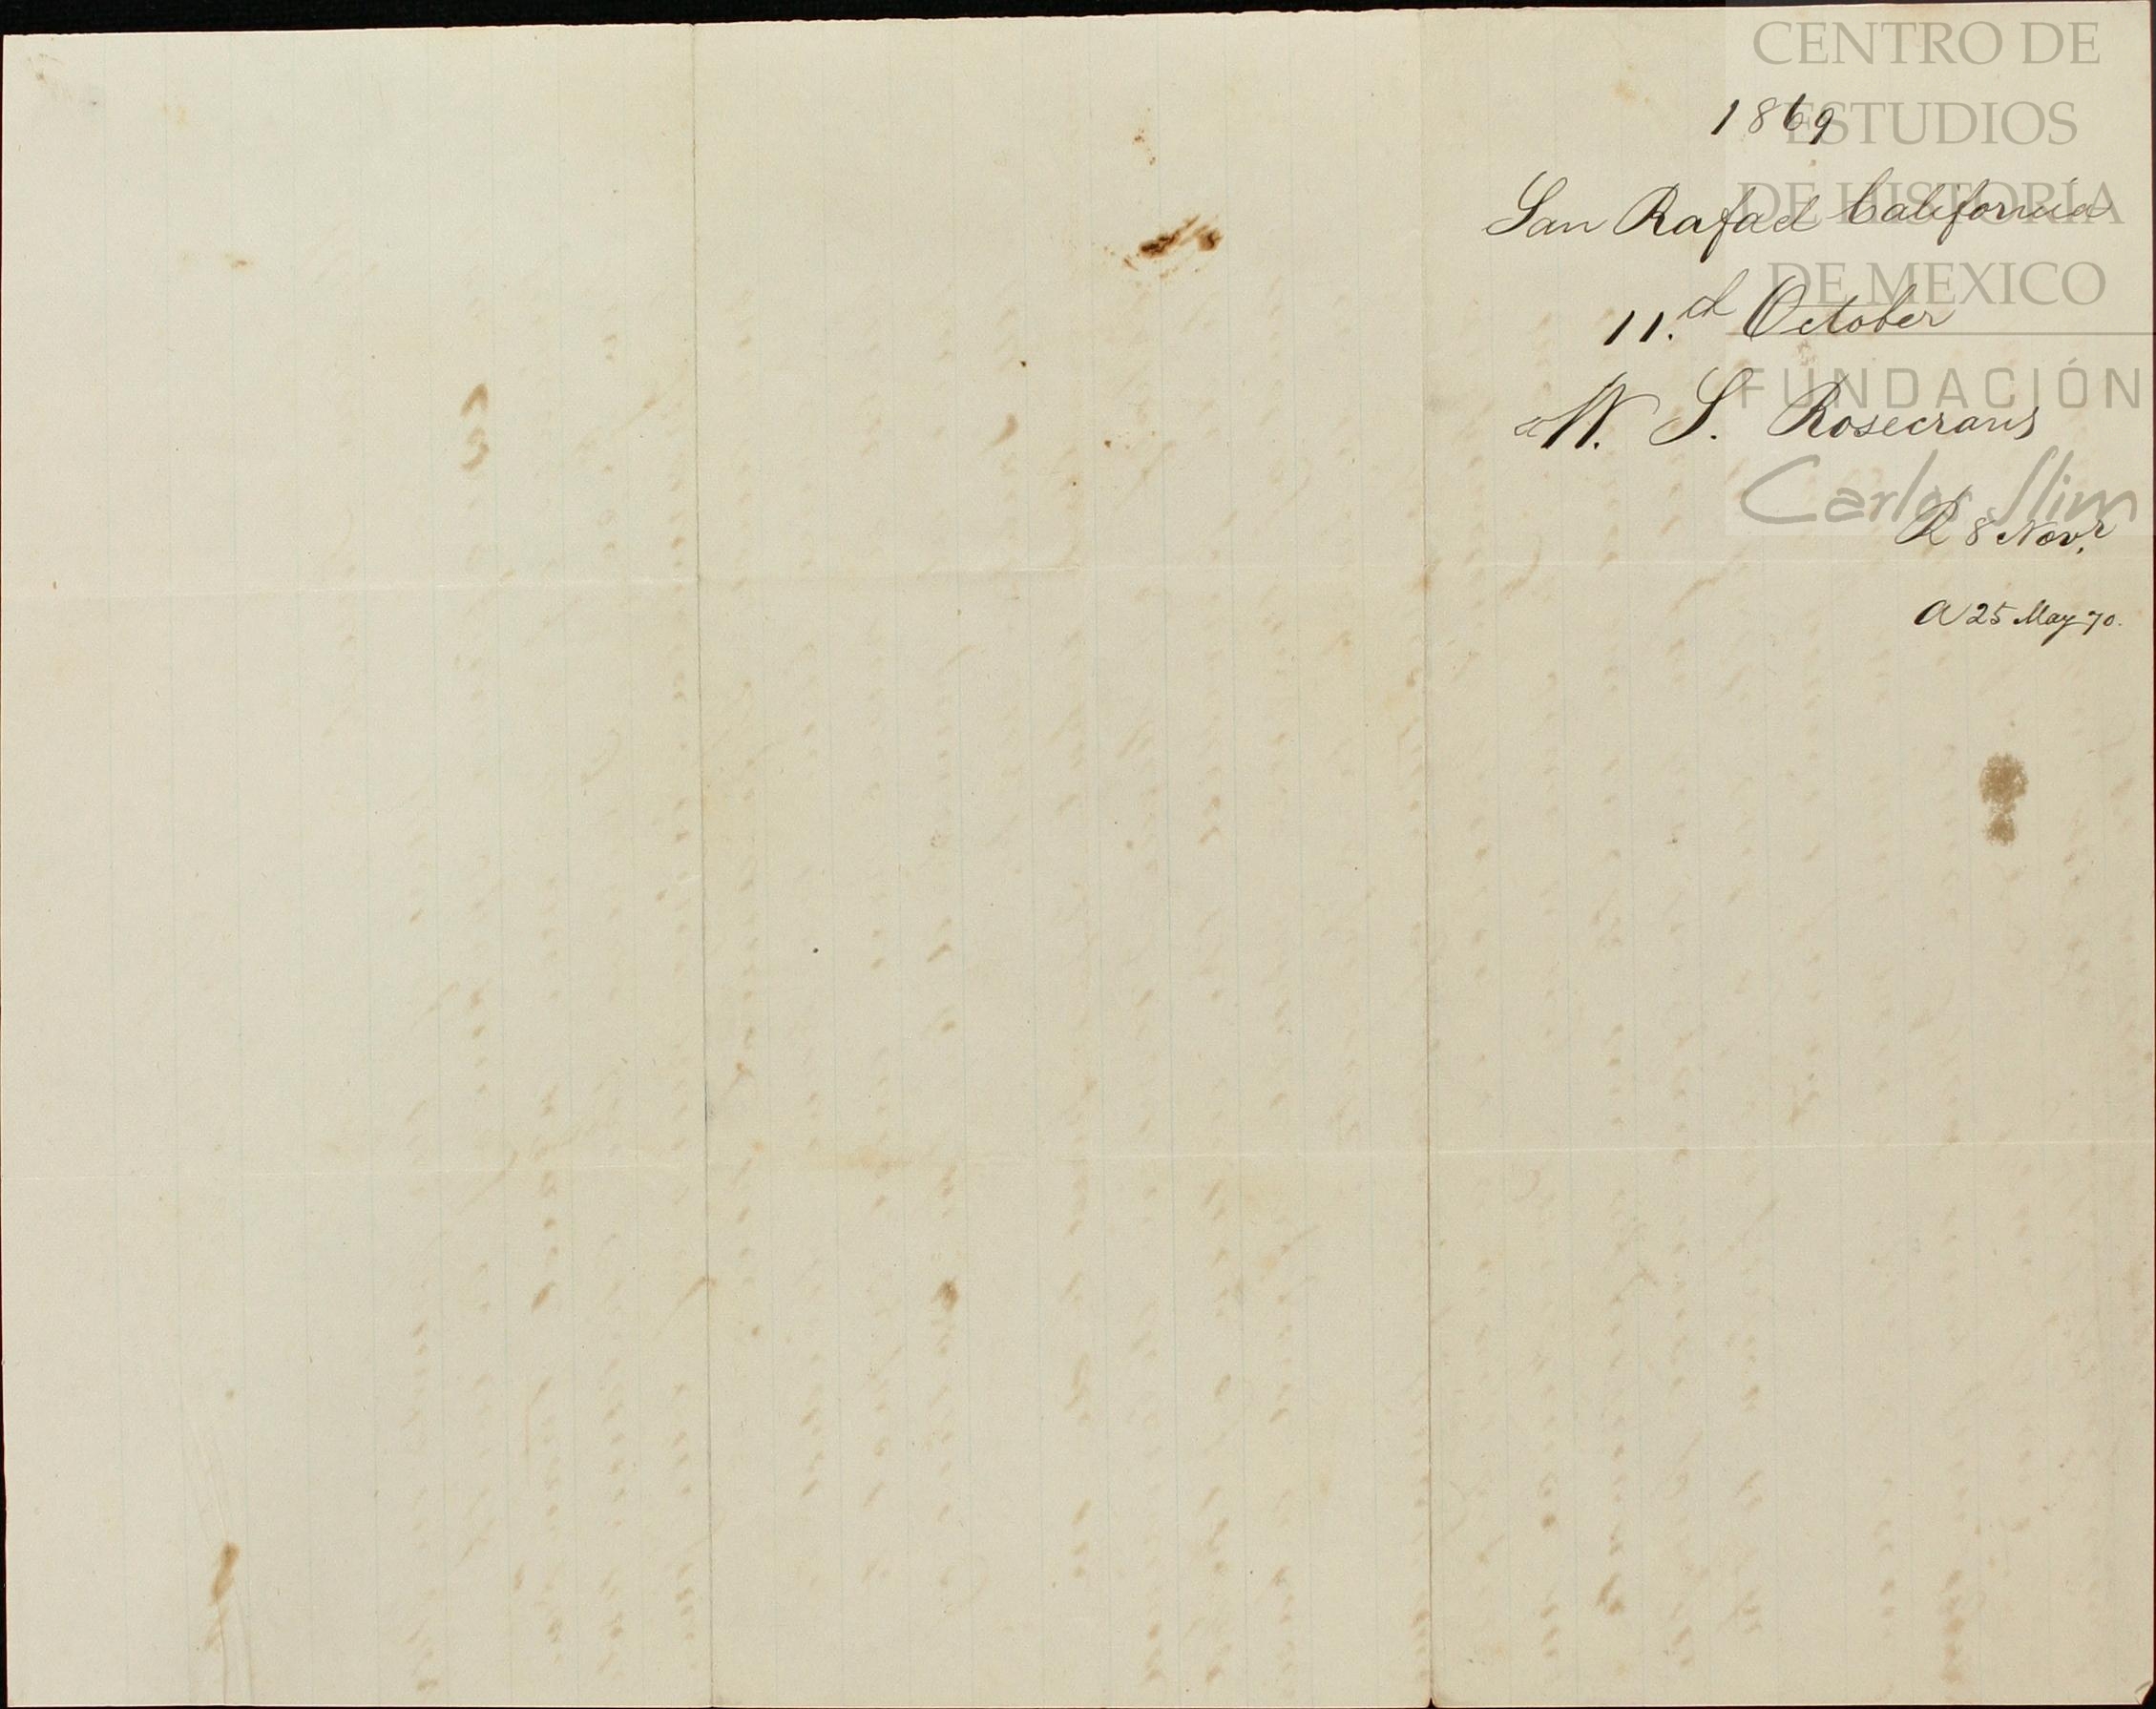 CENTRO DE
ESTUDIOS
DE HISTORIA
DE MEXICO
FUNDACIÓN
Carlos Slim
1869
San Rafael California
11.d October
W. S. Rosecrans
R 8 Novr.
A 25 May 70.